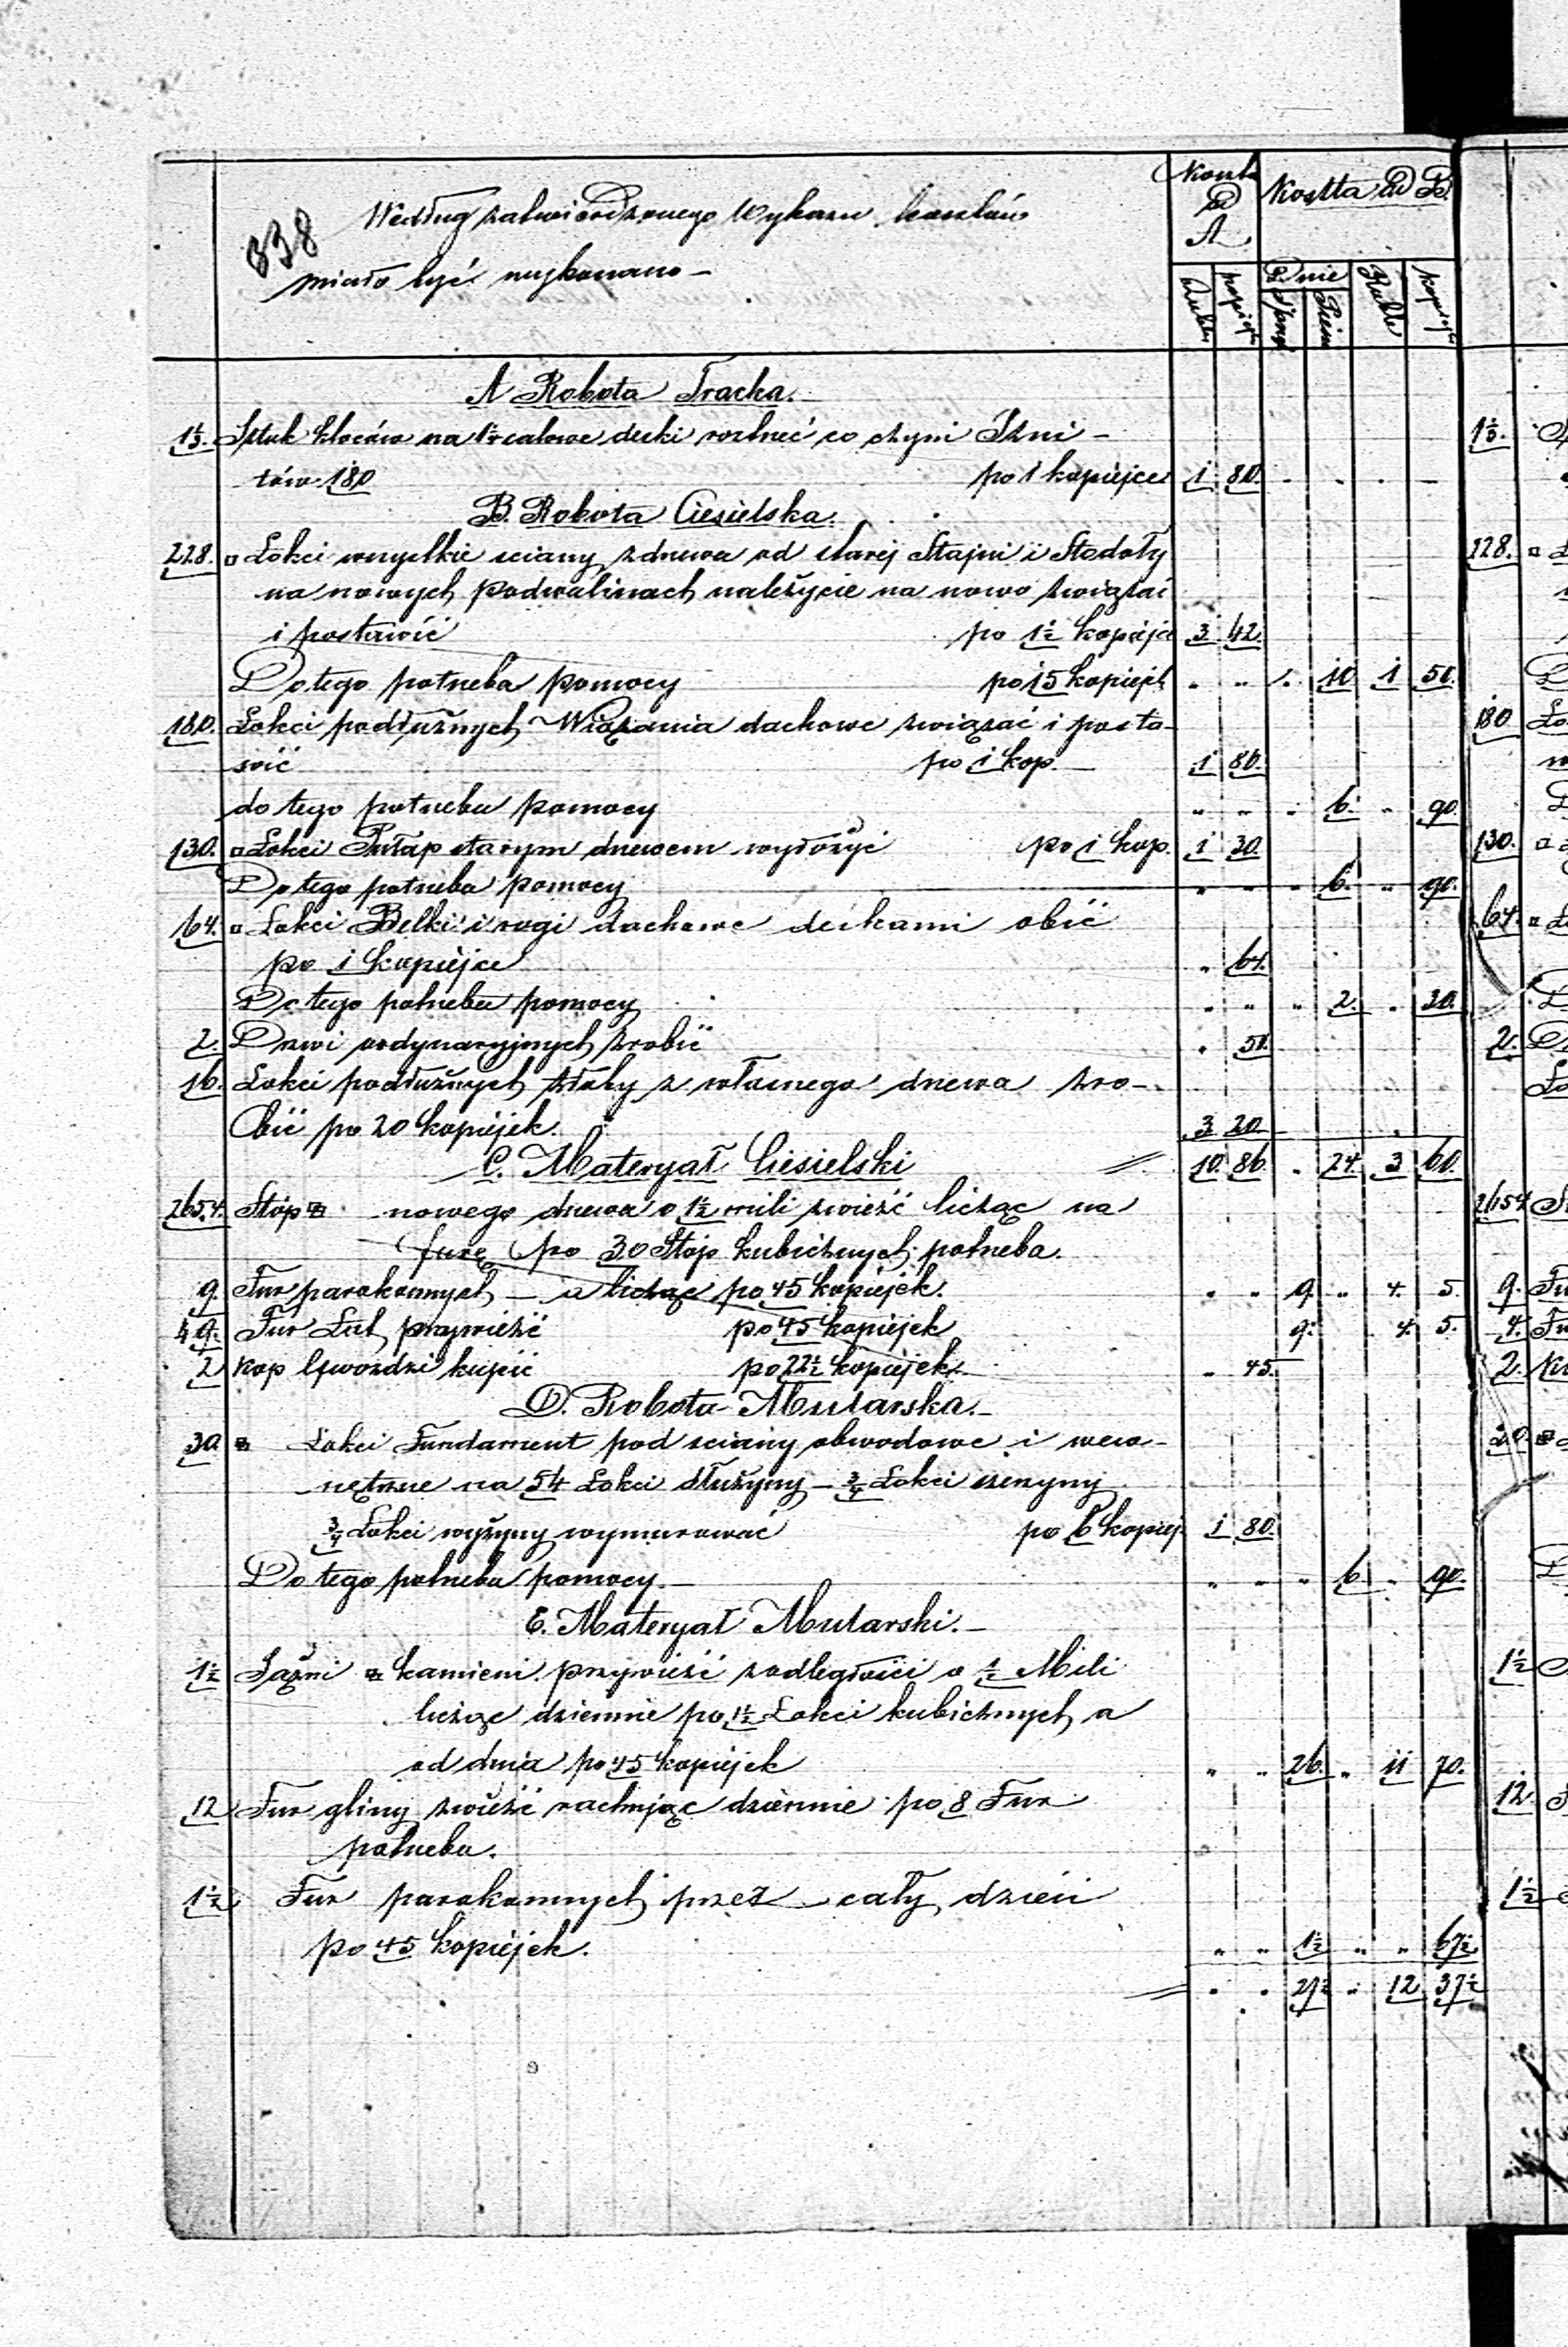 338
Według zatwierdzonego Wykazu kosztów
miało być wykonano –
Koszta
A
Kosztta B.
Dnie
Ruble
kopiejki
Ruble
kopiejki
A Robota Tracka.
Sztuk kloców na 1½ calowe deski rozłneć co czyni Szni-
tów 180 po 1 kopiejce 1 80.
B. Robota Ciesielska.
228. □ Łokci wszystkie sciany z drzewa od starej Stajni i Stodoły
na nowych podwalinach należycie na nowo związać
i postawić po 1½ kopiejce 3 42.
Do tego potrzeba pomocy po 15 kopiejek 10 1 50.
180. Łokci podłużnych Wiązania dachowe związać i posta-
wić po 1 kop. 1 80.
do tego potrzeba pomocy 6. 90.
130. □ Łokci Pułap starym drzewem wyłożyć po 1 kop. 1 30.
Do tego potrzeba pomocy 6. 90.
64. □ Łokci Belki i rogi dachowe deskami obić
po 1 kopiejce 64.
Do tego potrzeba pomocy 2. 30.
2. Drzwi ordynaryjnych zrobić 50.
16. Łokci podłużnych żłoby z własnego drzewa zro-
bić po 20 kopiejek. 3 20.
C. Materyał Ciesielski 10. 86. 24. 3 60.
265.4. Stop nowego drzewa o 1½ mili zwieść licząc na
furę po 30 Stop kubicznych potrzeba.
9. Fur parokonnych – a licząc po 45 kopiejek. 9. 4. 5.
9. Fur Lub przywieźć po 45 kopiejek 9. 4. 5.
2 Kop Gwozdzi kupić po 22½ kopiejek. 45.
D. Robota Mularska.–
30 Łokci Fundament pod sciany obwodowe i wew-
nętrzne na 54 Łokci dłużyny – ¾ Łokci szerzyny
¾ Łokci wyżyny wymurować po 6 kopiej 1 80.
Do tego potrzeba pomocy.– 6. 90.
E. Materyał Mularski.–
1½ Sążni kamieni przywieźć z odległości o ½ Mili
licząc dziennie po 1½ Łokci kubicznych a
od dnia po 45 kopiejek 26. 11 70.
12 Fur gliny zwieść rachując dziennie po 8 Fur
potrzeba.
1½ Fur parokonnych przez cały dzień
po 45 kopiejek. 1½ 67½
27½ 12 37½
1⅓.
128.
180
130.
64.
2.
2654
9.
4.
2.
20.
1½
12.
1½